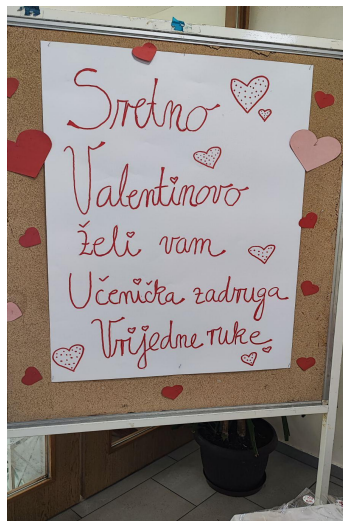 Sretno
Valentinovo
želi vam
Učenička zadruga
Vrijedne ruke